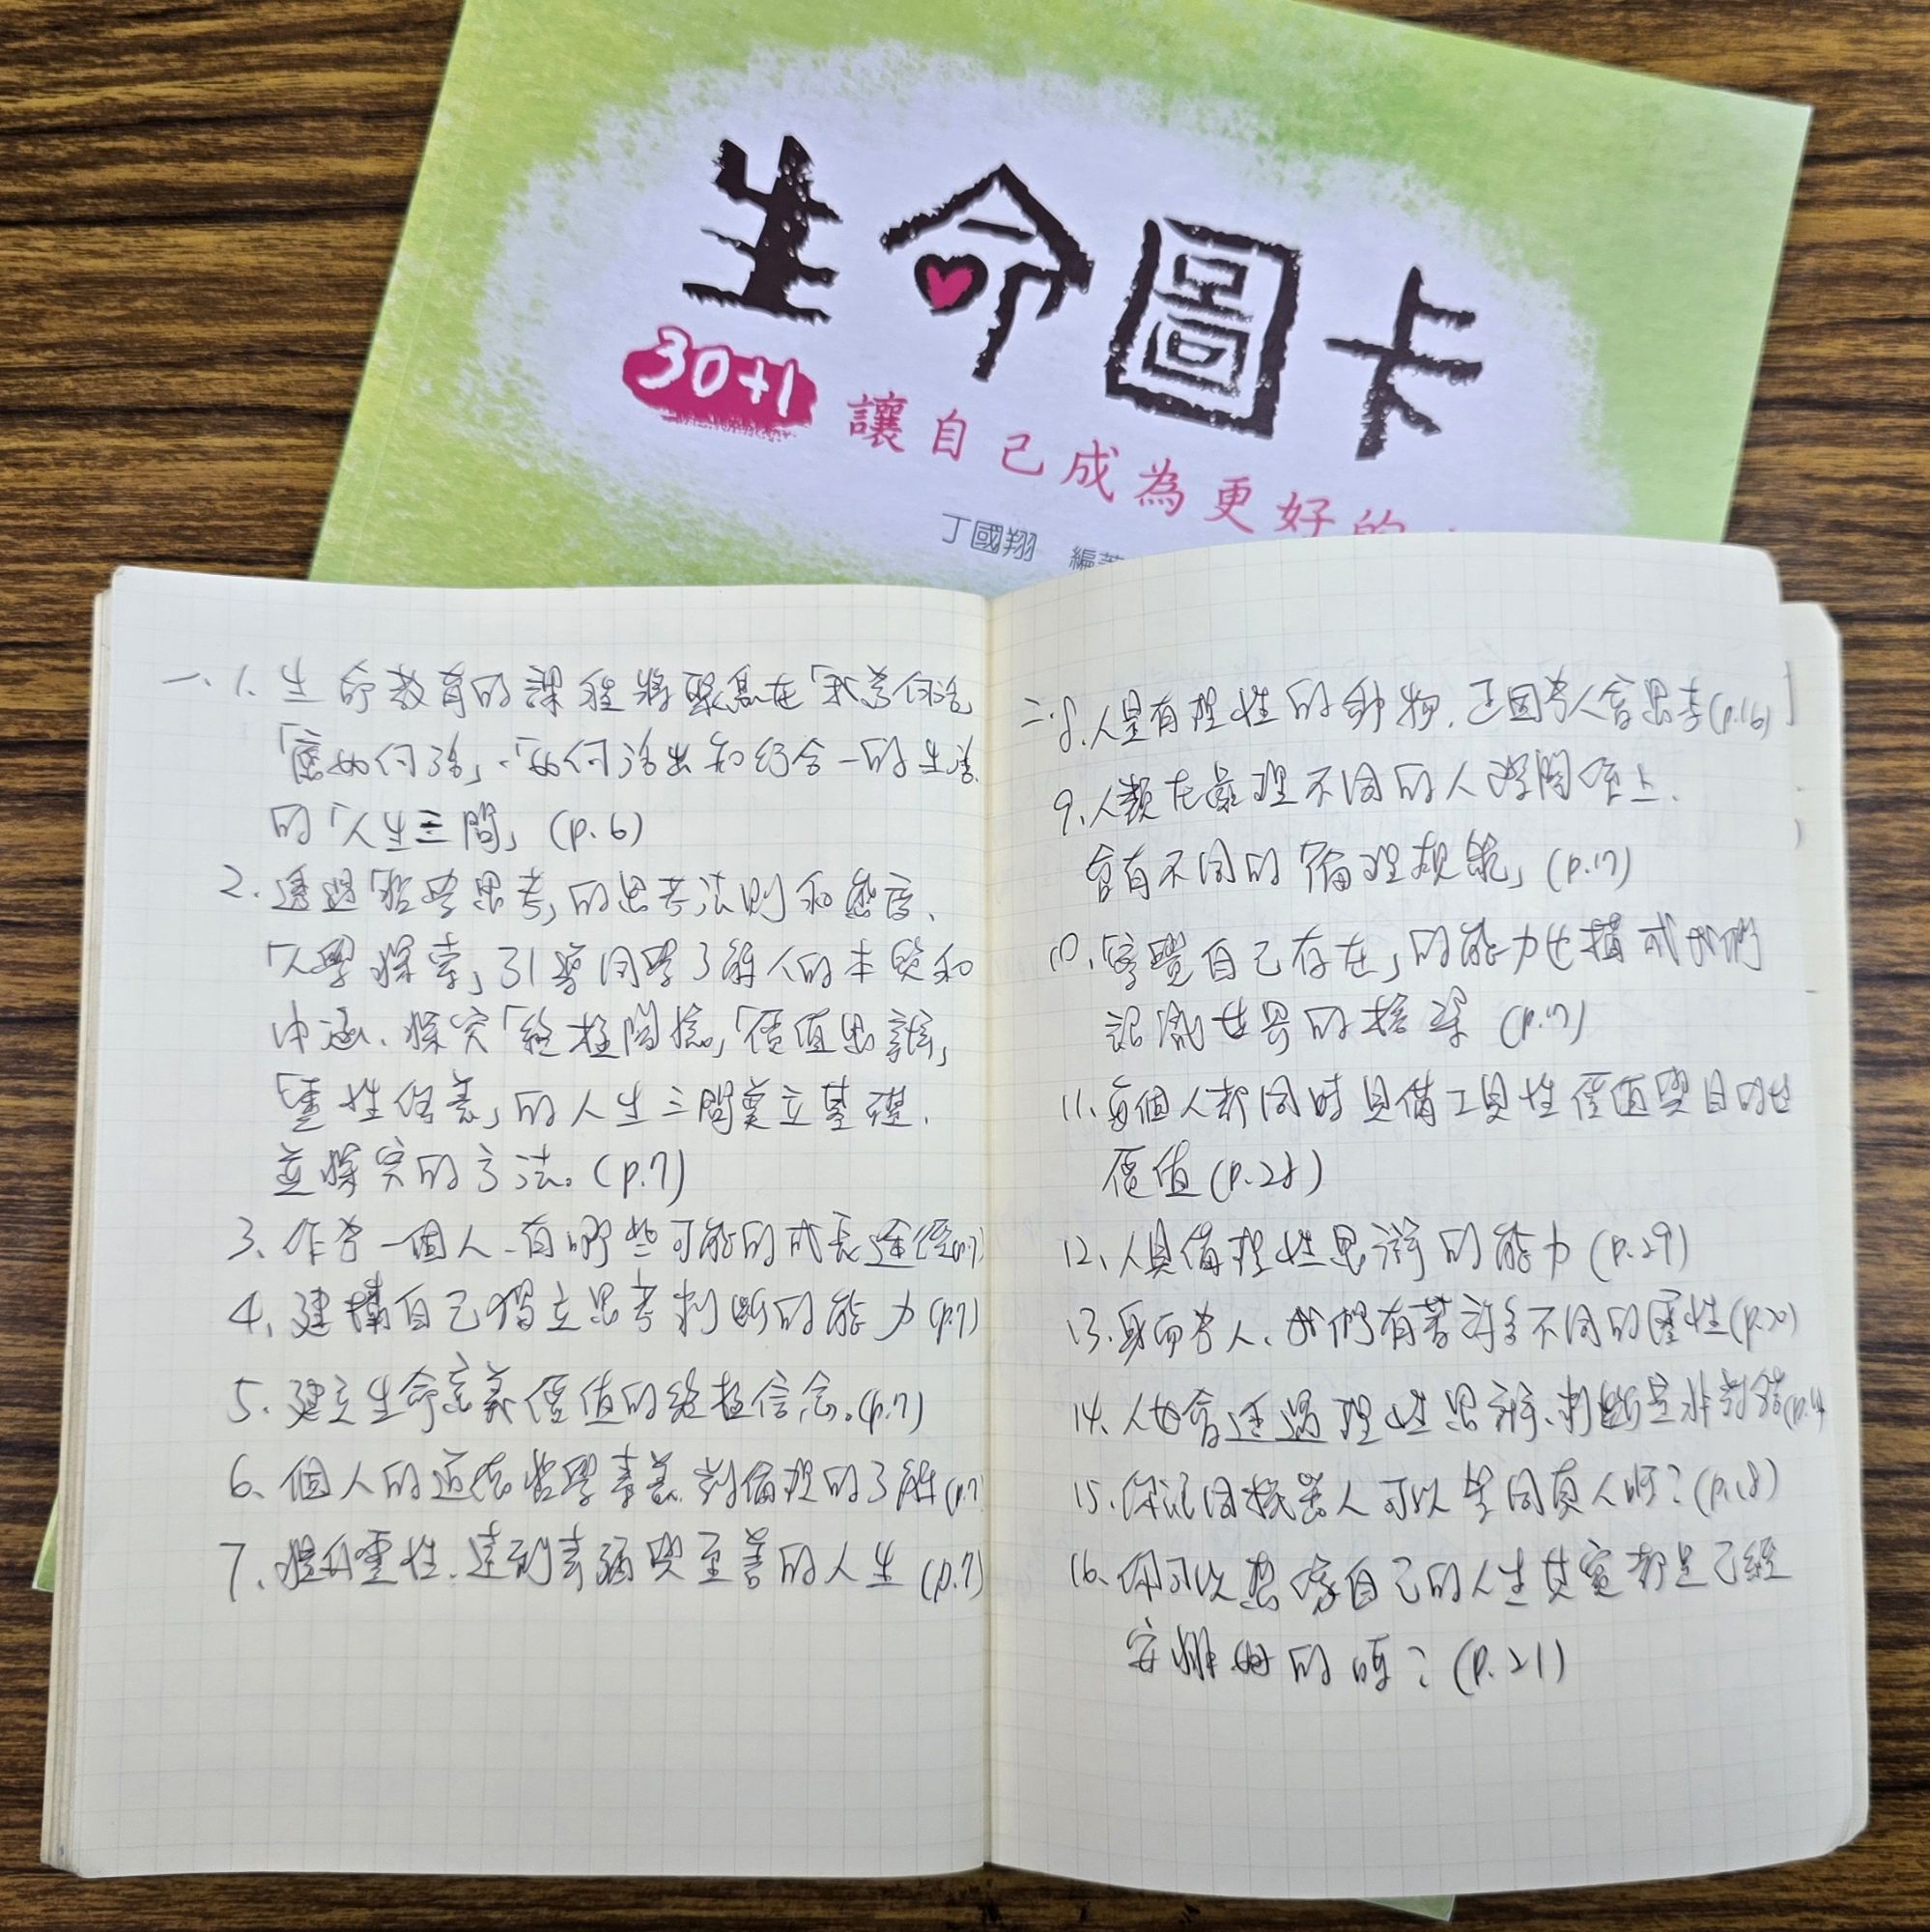 生命圖卡
30+1 讓自己成為更好的
丁國翔 編著
一、1. 生命教育的課程將聚焦在「我為何活」
「應如何活」、「如何活出知行合一的生活」
的「人生三問」(p.6)
2. 透過「哲學思考」的思考法則和態度、
「人學探索」引導同學了解人的本質和
內涵、探究「終極關懷」「價值思辨」
「靈性修養」的人生三問奠立基礎.
並探究的方法。(p.7)
3、作為一個人、有哪些可能的成長途徑(p.7)
4、建構自己獨立思考判斷的能力(p.7)
5、建立生命意義價值的終極信念。(p.7)
6、個人的道德哲學素養、對倫理的了解(p.7)
7、提升靈性、達到幸福與至善的人生(p.7)
二、8.人是有理性的動物.正因為人會思考(p.16)
9、人類在處理不同的人際關係上、
會有不同的「倫理規範」(p.17)
10、「察覺自己存在」的能力也構成我們
認識世界的橋梁 (p.17)
11、每個人都同時具備工具性價值與目的性
價值(p.28)
12、人具備理性思辨的能力(p.29)
13.身而為人、我們有著許多不同的屬性(p.20)
14、人也會透過理性思辨、判斷是非對錯
15.你認同機器人可以等同真人啊?(p.18)
16、你可以想像自己的人生其實都是已經
安排好的嗎?(p.21)